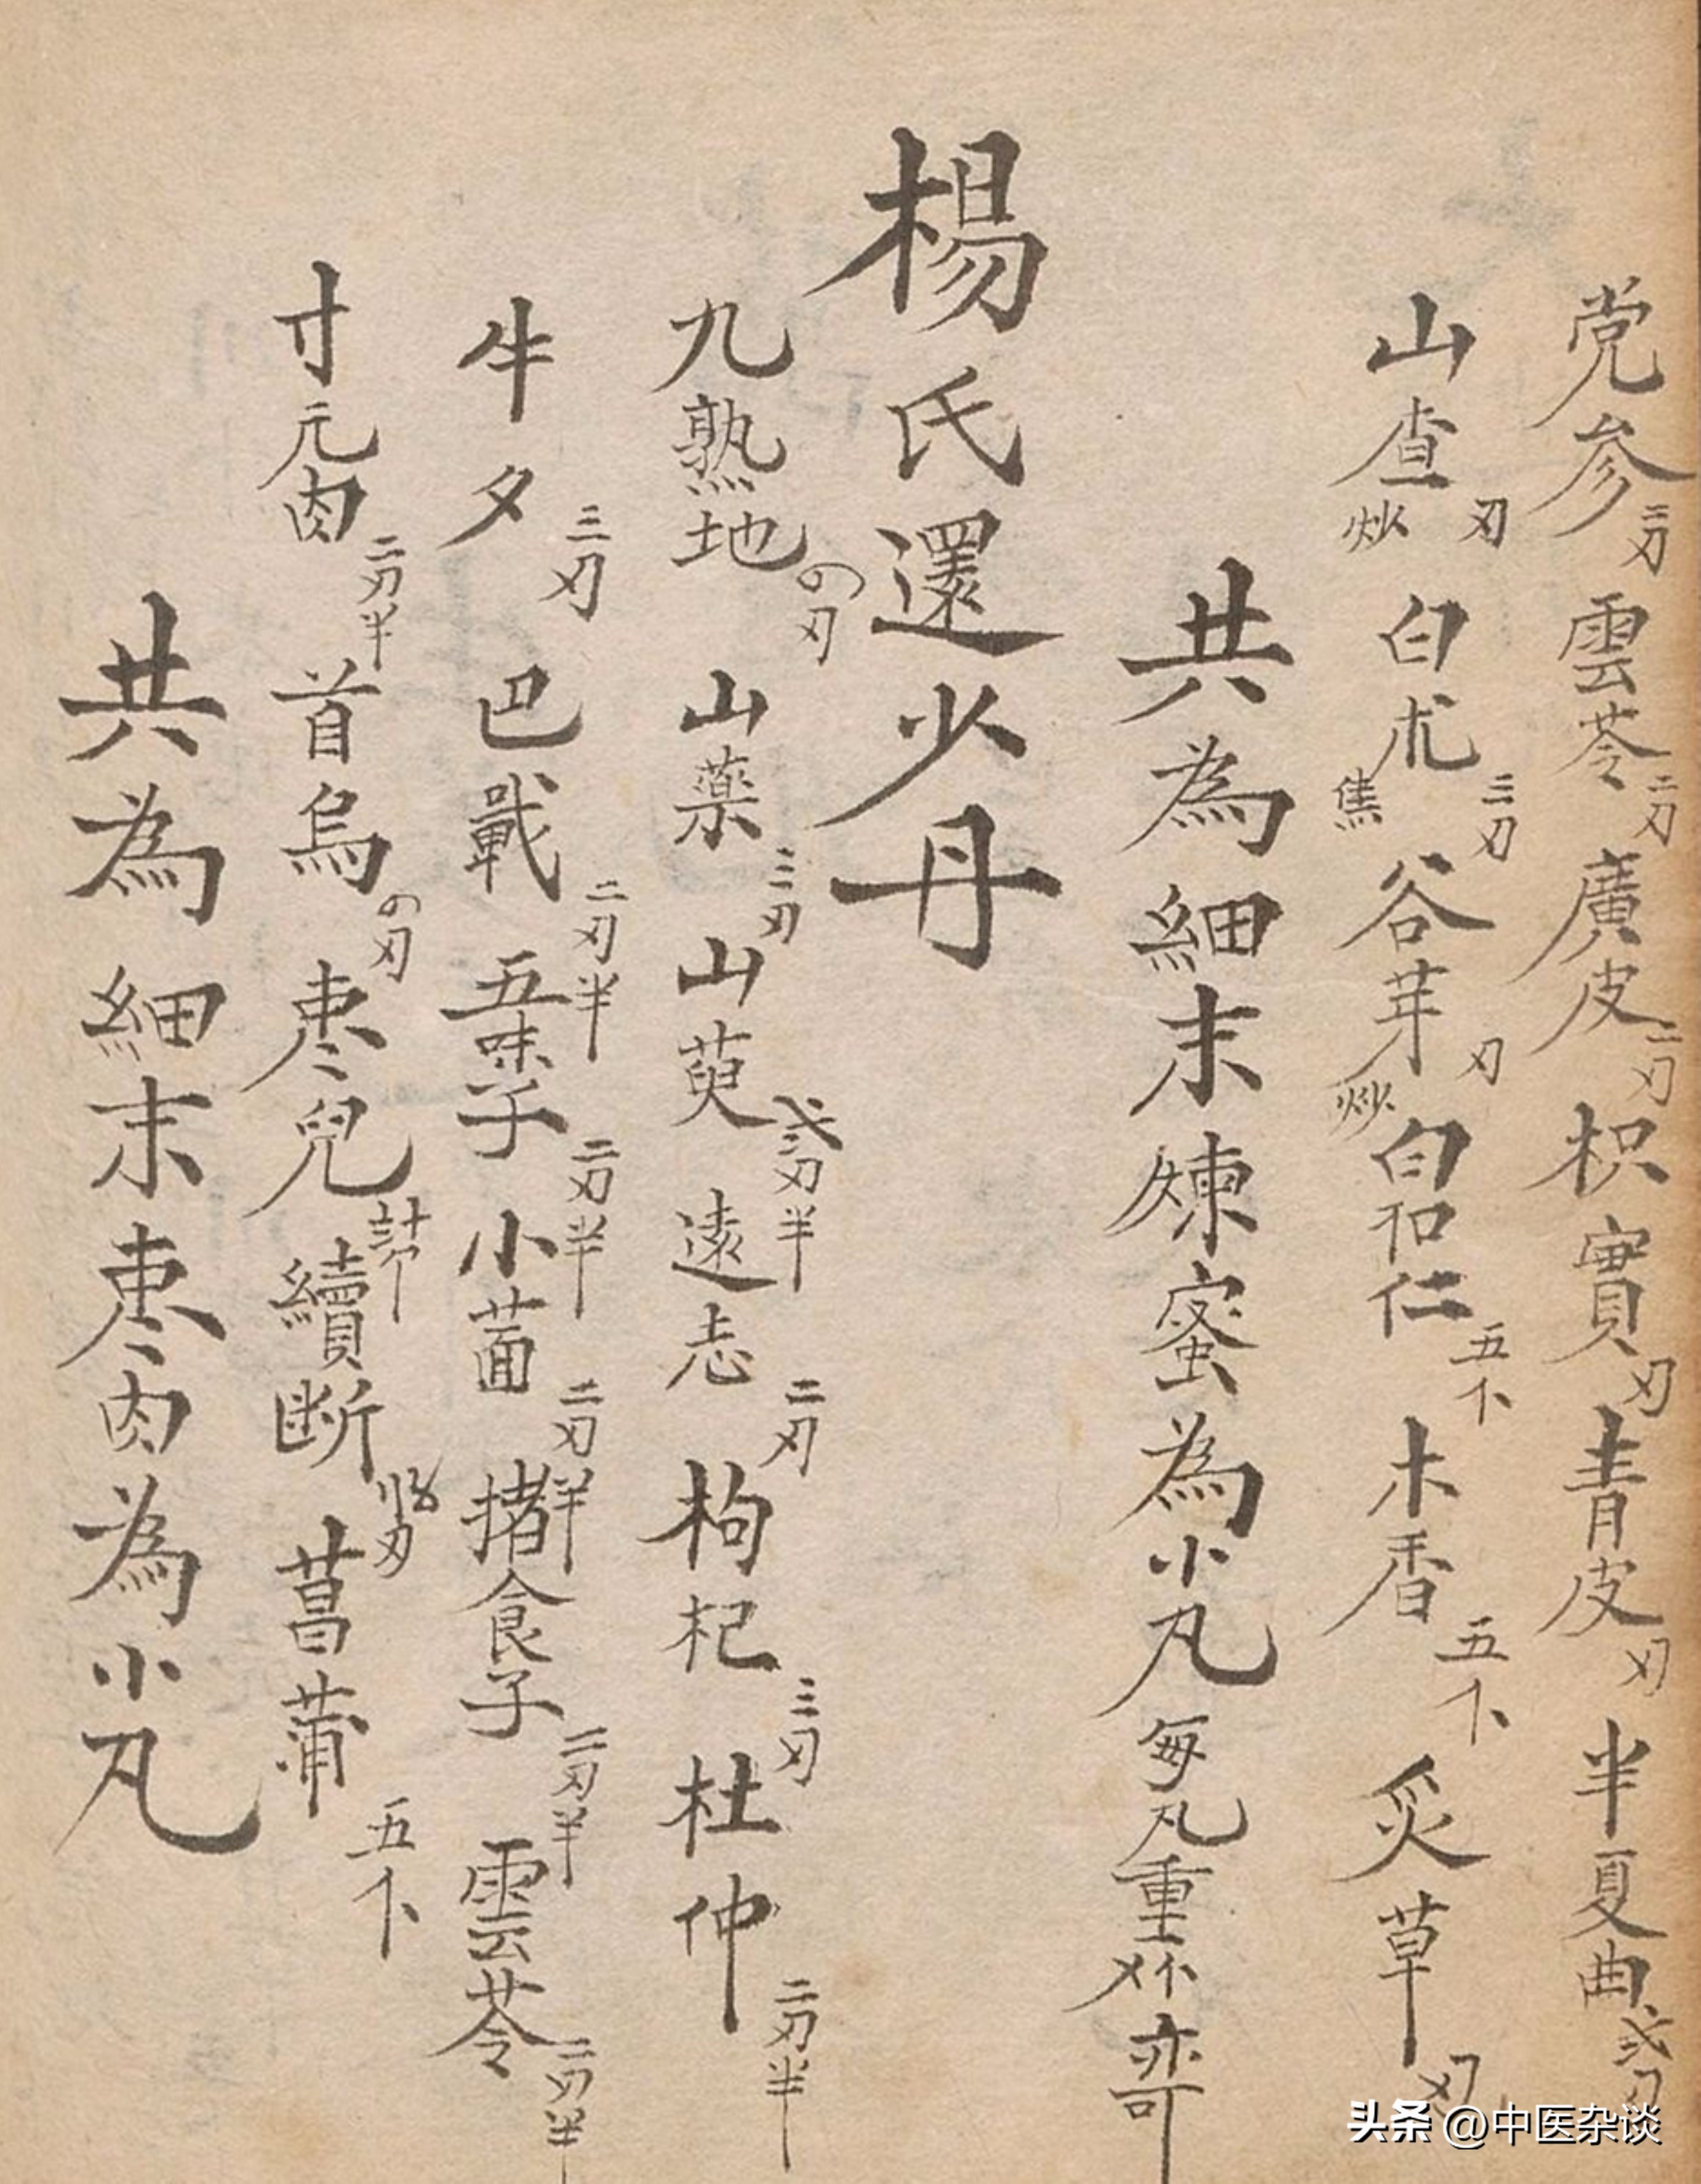 党参三刃 雲苓二刃 廣皮二刃 枳實刃 青皮刃 半夏曲弍刃
山查炒刃 白朮焦三刃 谷芽炒刃 白扣仁五卜 木香五卜 炙草刃
共為細末煉蜜為小凡每凡重刈卜奇
楊氏還少丹
九熟地の刃 山藥三刃 山萸弍刃半 遠志二刃 枸杞三刃 杜仲二刃半
牛夕三刃 巴戟二刃半 五味子二刃半 小茴二刃半 揩食子二刃半 雲苓二刃半
寸元肉二刃半 首烏の刃 枣兒 續断刃 菖蒲五卜
共為細末枣肉為小凡
头条 @中医杂谈